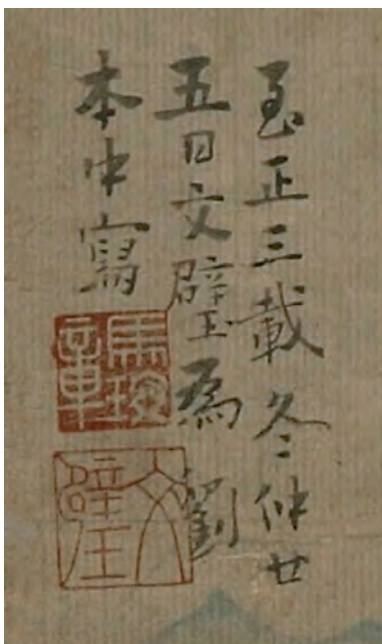 至正三載冬仲廿
五日文璧為劉
本中寫
馬琬
章
文璧